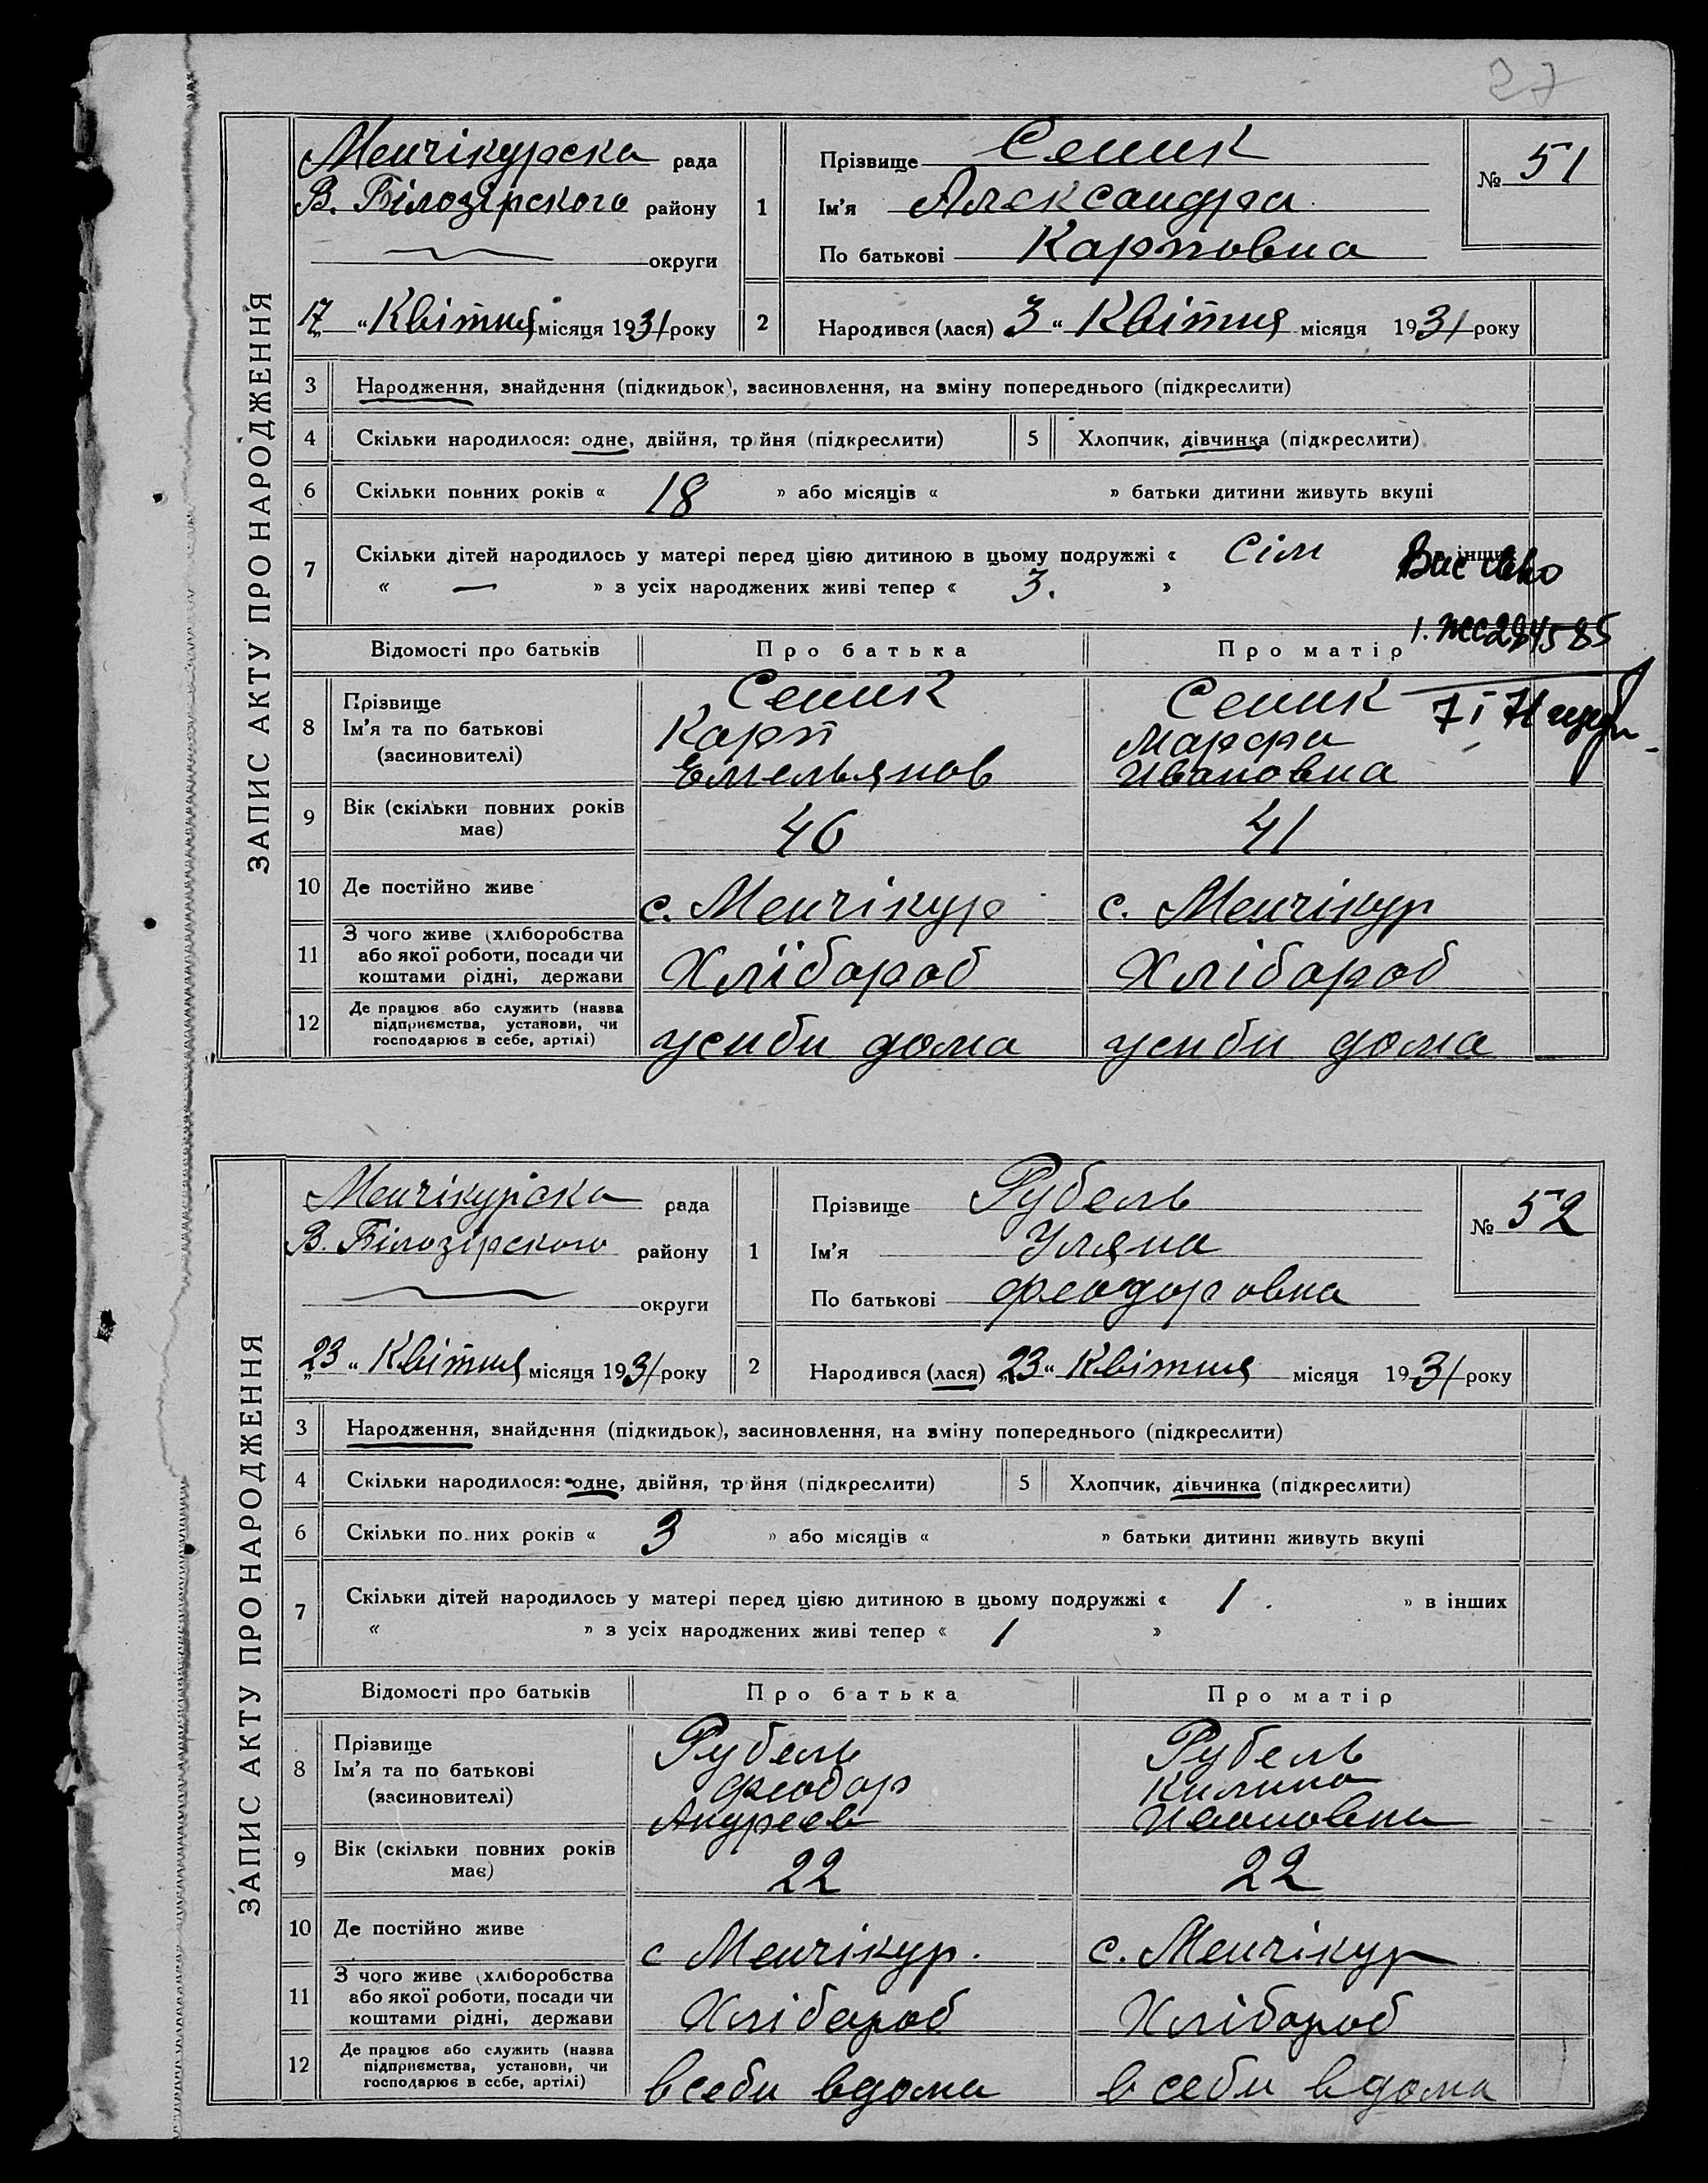 27
ЗАПИС АКТУ ПРО НАРОДЖЕННЯ
Менчікурска рада
В. Білозірского району
округи
17 " Квітня місяця 1931 року
1 Прізвище Сеник
Ім'я Александра
По батькові Карповна
№ 51
2 Народився (лася) 3 " Квітня місяця 1931 року
3 Народження, знайдення (підкидьок), засиновлення, на зміну попереднього (підкреслити)
4 Скільки народилося: одне, двійня, тр йня (підкреслити) 5 Хлопчик, дівчинка (підкреслити)
6 Скільки повних років « 18 » або місяців « » батьки дитини живуть вкупі
7 Скільки дітей народилось у матері перед цією дитиною в цьому подружжі « Сім
« — » з усіх народжених живі тепер « 3. »
Відомості про батьків Про батька Про матір
8 Прізвище Ім'я та по батькові (засиновителі)
Сеник Карп Емельянов
Сеник Марфа Ивановна
9 Вік (скільки повних років має) 46 41
10 Де постійно живе с. Менчікур с. Менчікур
11 З чого живе (хліборобства або якої роботи, посади чи коштами рідні, держави Хлібороб Хлібороб
12 Де працює або служить (назва підприємства, установи, чи господарює в себе, артілі) усиби дома усиби дома
ЗАПИС АКТУ ПРО НАРОДЖЕННЯ
Менчікурска рада
В. Білозірского району
округи
23 " Квітня місяця 1931 року
1 Прізвище Рубель
Ім'я Уляна
По батькові Феодоровна
№ 52
2 Народився (лася) 23 " Квітня місяця 1931 року
3 Народження, знайдення (підкидьок), засиновлення, на зміну попереднього (підкреслити)
4 Скільки народилося: одне, двійня, тр йня (підкреслити) 5 Хлопчик, дівчинка (підкреслити)
6 Скільки по них років « 3 » або місяців « » батьки дитини живуть вкупі
7 Скільки дітей народилось у матері перед цією дитиною в цьому подружжі « 1. » в інших
« » з усіх народжених живі тепер « 1 »
Відомості про батьків Про батька Про матір
8 Прізвище Ім'я та по батькові (засиновителі)
Рубель Феодор Андреев
Рубель Килина Ивановна
9 Вік (скільки повних років має) 22 22
10 Де постійно живе с Менчікур. с. Менчікур
11 З чого живе (хліборобства або якої роботи, посади чи коштами рідні, держави Хлібороб Хлібороб
12 Де працює або служить (назва підприємства, установи, чи господарює в себе, артілі) всеби вдома всеби вдома